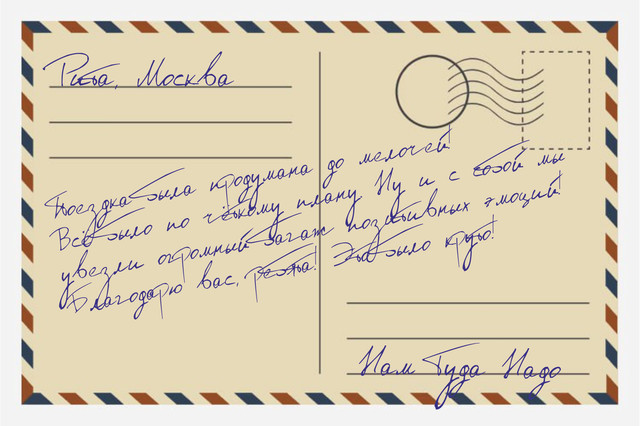 Рита, Москва
Поездка была продумана до мелочей!
Всё было по чёткому плану. Ну и с собой мы
увезли огромный багаж позитивных эмоций!
Благодарю вас, ребята! Это было круто!
Нам Туда Надо